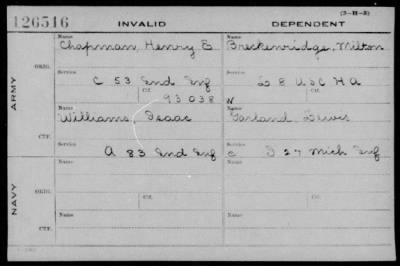 (3-H-3)
126516 INVALID DEPENDENT
Name Name
Chapman, Henry E Breckenridge, Milton
ORIG.
Service Service
C 53 Ind Inf D 8 U S C H A
Ctf. Ctf.
93038 W
ARMY
Name Name
Williams, Isaac Garland, Lewis
CTF.
Service Service
A 83 Ind Inf C D 27 Mich Inf
Name Name
ORIG.
Service Ctf. Service Ctf.
NAVY
Name Name
CTF.
Service Service